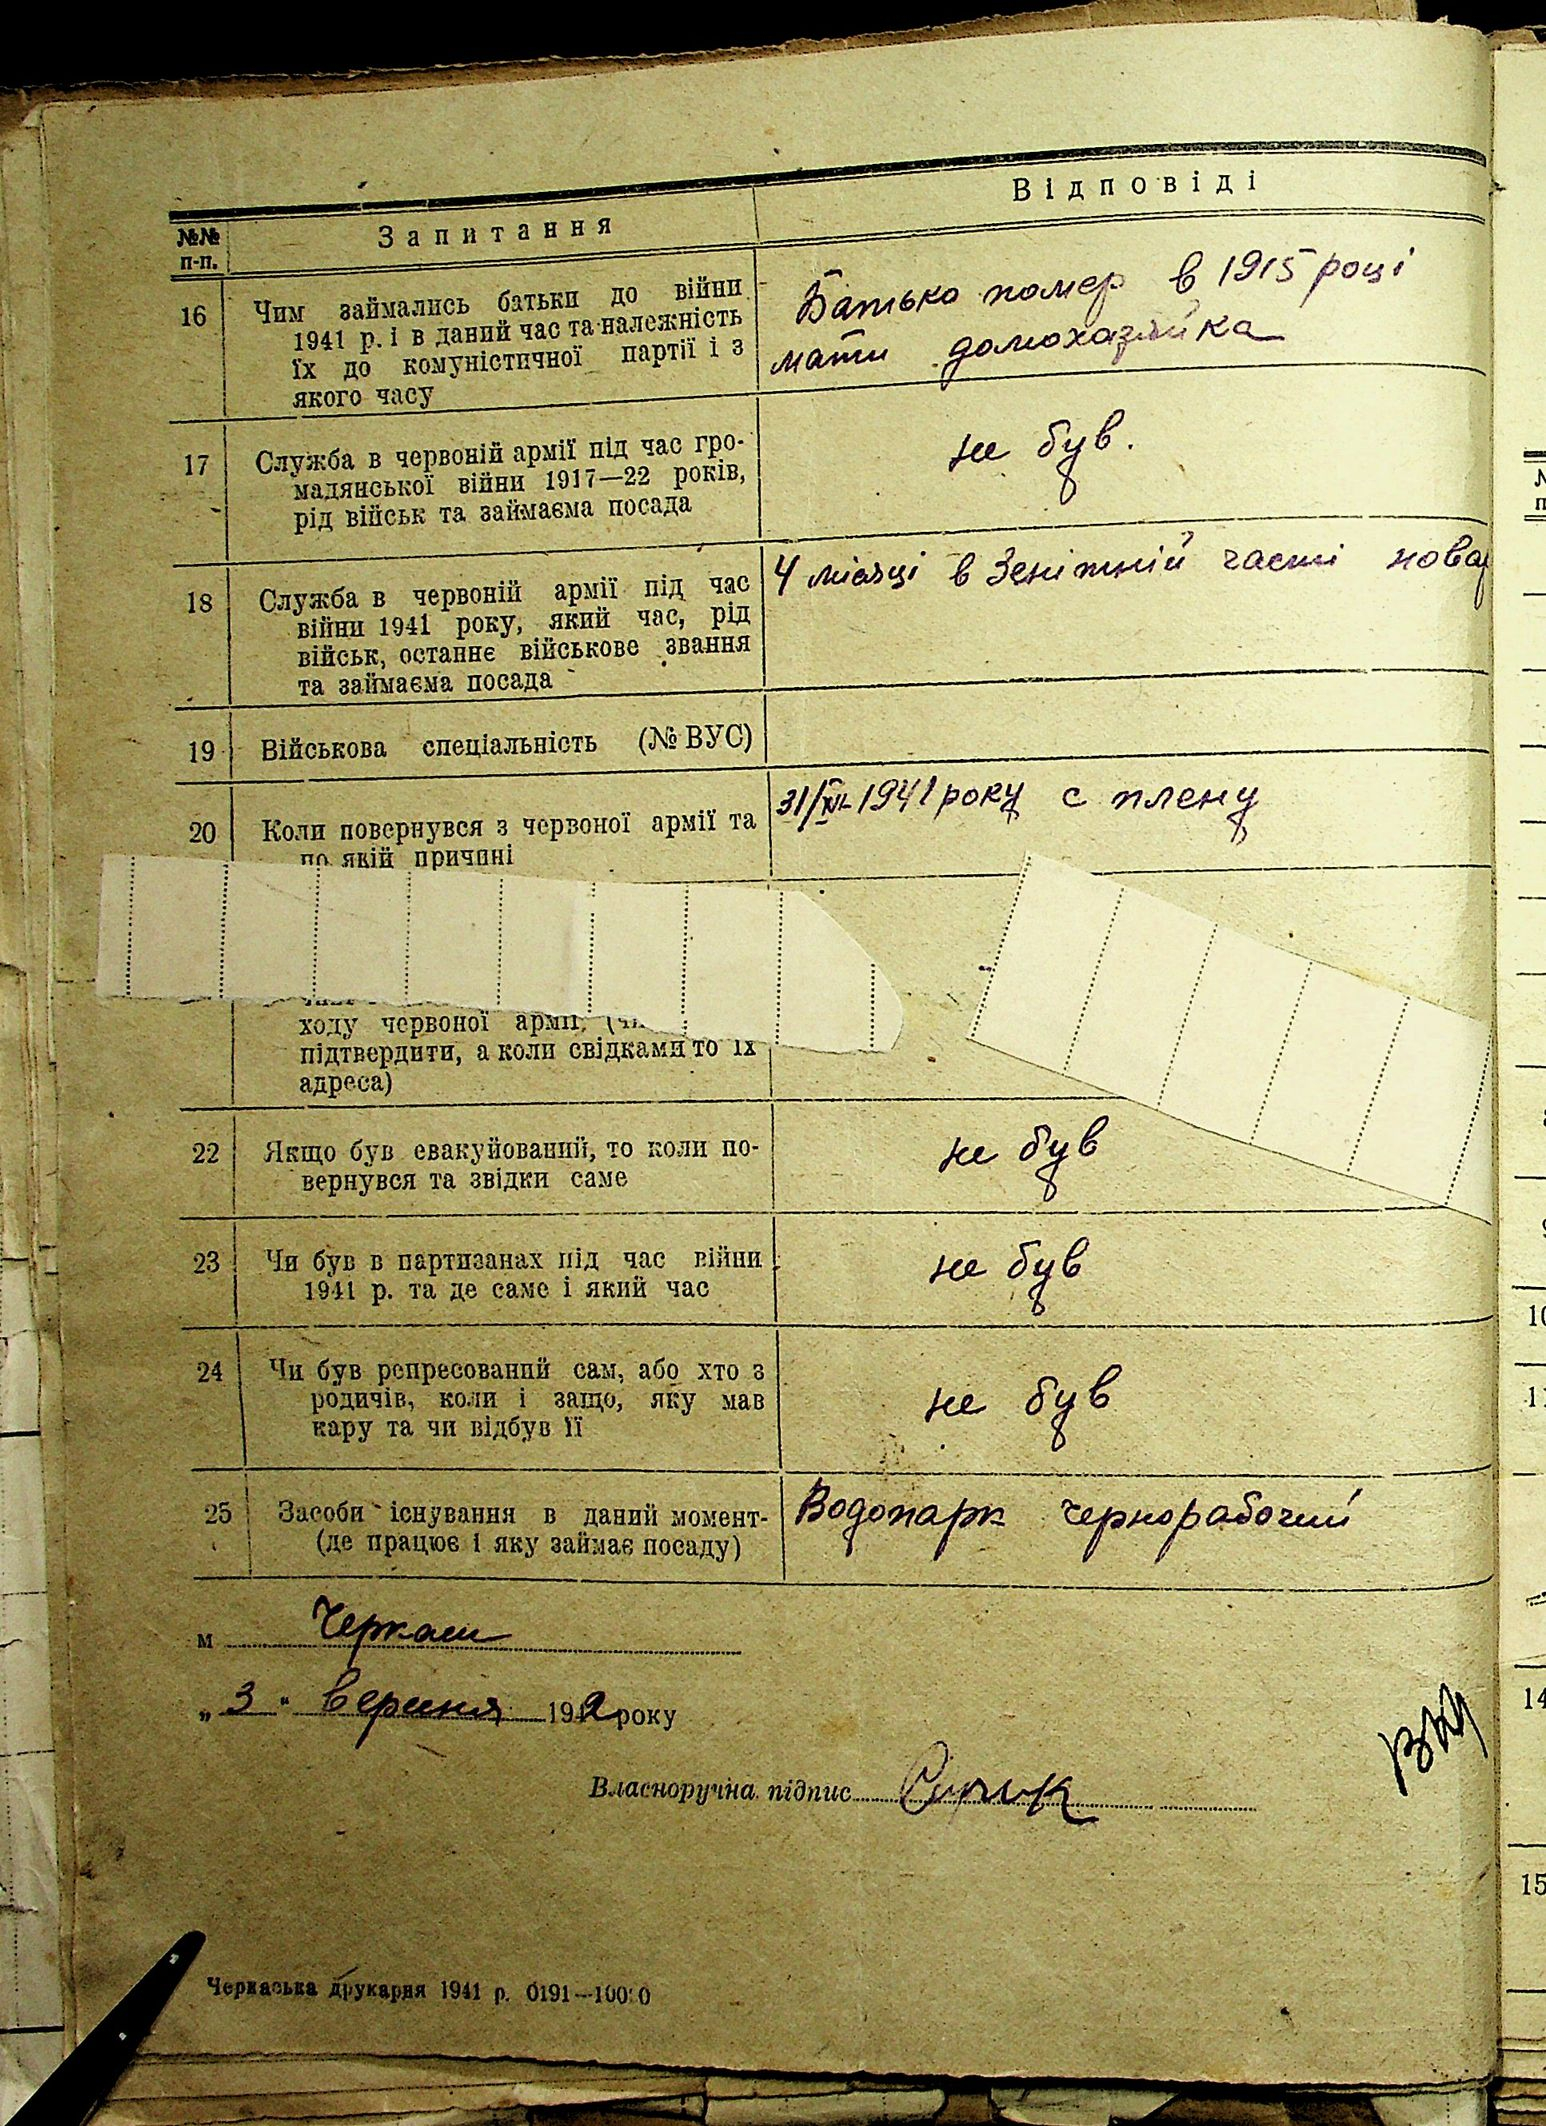 №№ п-п.
Запитання
Відповіді
16
Чим займались батьки до війни
1941 р. і в даний час та належність
їх до комуністичної партії і з
якого часу
Батько помер в 1915 році
мати домохазяйка
17
Служба в червоній армії під час гро-
мадянської війни 1917—22 років,
рід військ та займаєма посада
не був.
18
Служба в червоній армії під час
війни 1941 року, який час, рід
військ, останнє військове звання
та займаєма посада
4 місяці в Зенітній части повар
19
Військова спеціальність (№ ВУС)
20
Коли повернувся з червоної армії та
по якій причині
31/XII 1941 року с плену
ходу червоної армії,
підтвердити, а коли свідками то їх
адреса)
22
Якщо був евакуйований, то коли по-
вернувся та звідки саме
не був
23
Чи був в партизанах під час війни
1941 р. та де саме і який час
не був
24
Чи був репресований сам, або хто з
родичів, коли і защо, яку мав
кару та чи відбув її
не був
25
Засоби існування в даний момент-
(де працює і яку займає посаду)
Водопарк чернорабочий
м Черкаси
„3" вересня 1942 року
Власноручна підпис
Черкаська друкарня 1941 р. 0191—10000
10
14
15